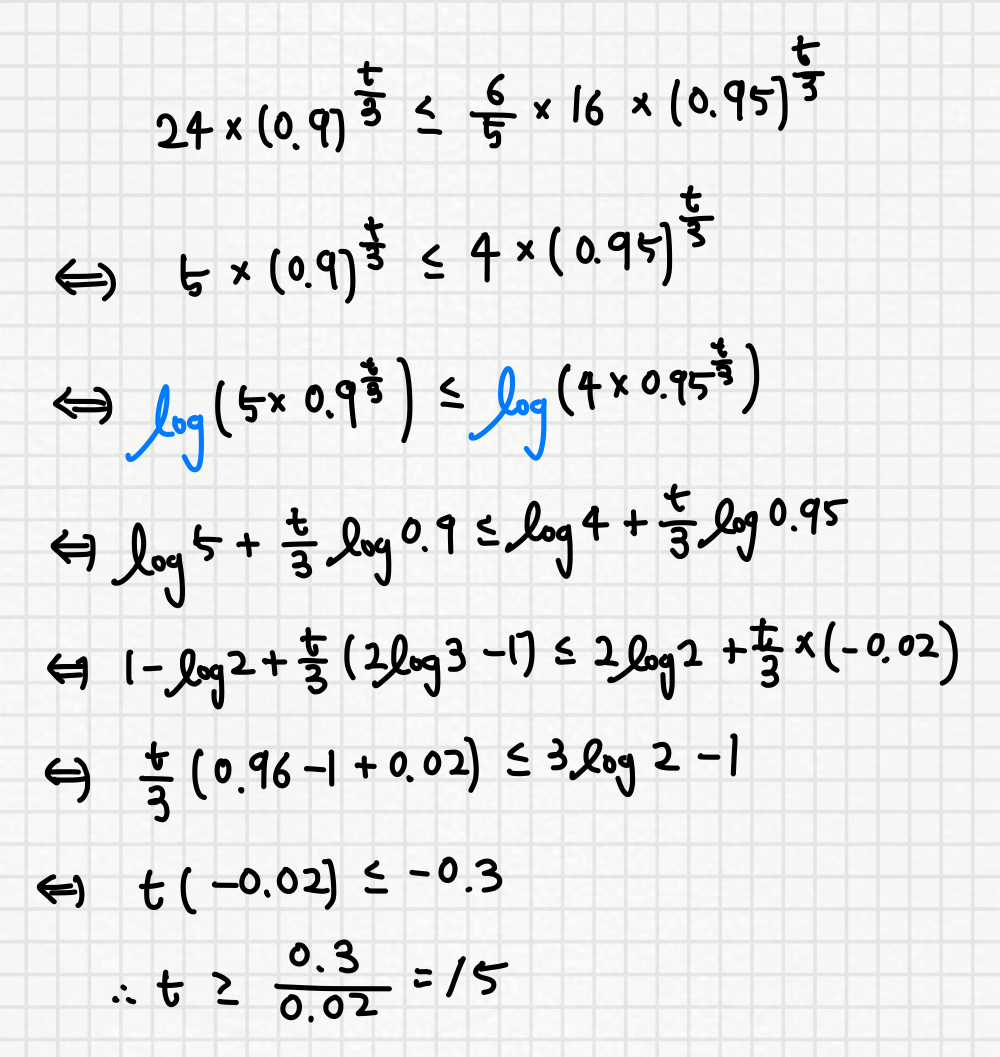 24 × (0.9)^{t/3} ≤ 6/5 × 16 × (0.95)^{t/3}
⇔ 5 × (0.9)^{t/3} ≤ 4 × (0.95)^{t/3}
⇔ log(5 × 0.9^{t/3}) ≤ log(4 × 0.95^{t/3})
⇔ log 5 + t/3 log 0.9 ≤ log 4 + t/3 log 0.95
⇔ 1 - log 2 + t/3 (2 log 3 - 1) ≤ 2 log 2 + t/3 × (-0.02)
⇔ t/3 (0.96 - 1 + 0.02) ≤ 3 log 2 - 1
⇔ t(-0.02) ≤ -0.3
∴ t ≥ 0.3/0.02 = 15